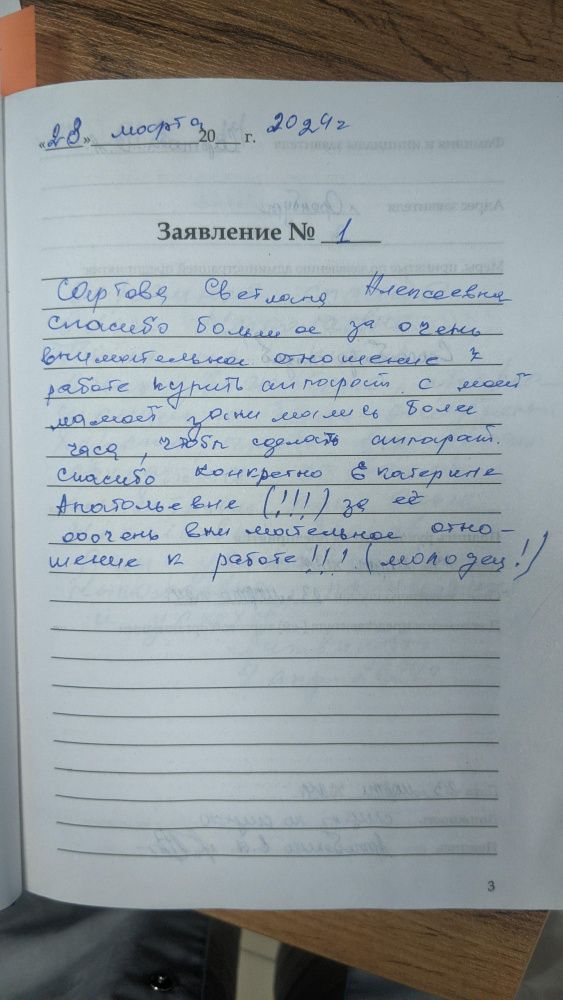 «28» марта 20 г. 2024г
Заявление № 1
Сартова Светлана Алексеевна
спасибо большое за очень
внимательное отношение к
работе купить аппарат с моей
мамой занимались более
часа, чтобы сделать аппарат.
Спасибо конкретно Екатерине
Анатольевне (!!!) за её
ооочень внимательное отно-
шение к работе!!! (молодец!)
3